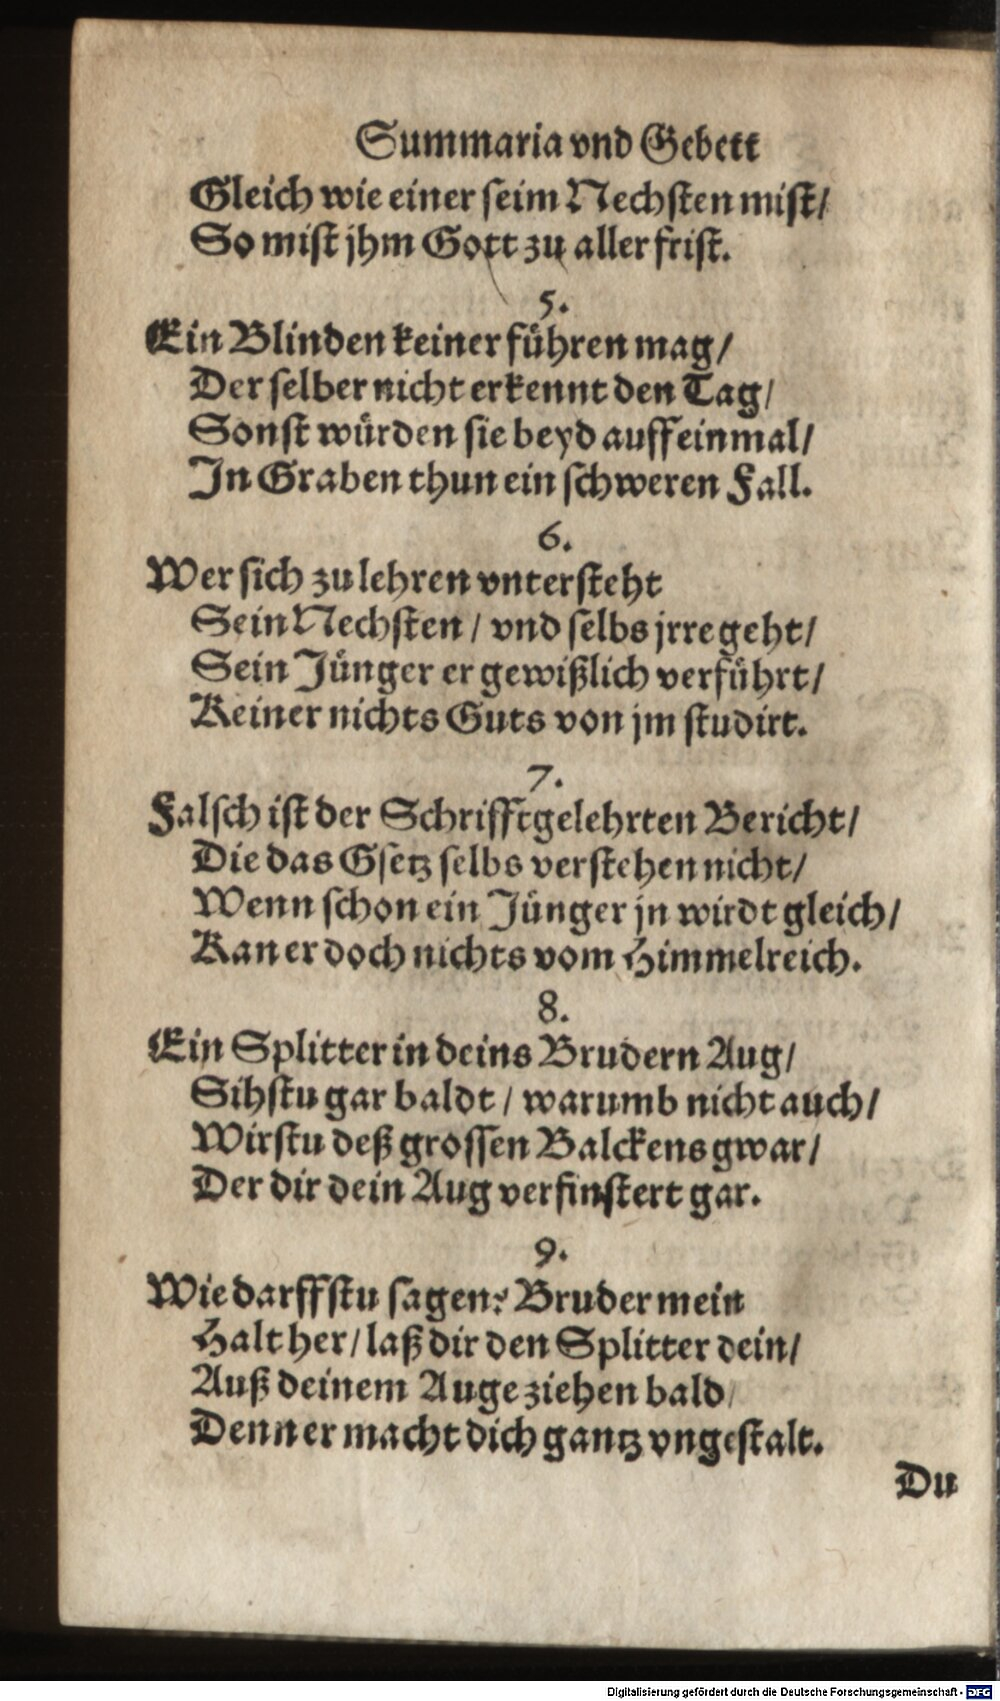 Summaria vnd Gebett
Gleich wie einer seim Nechsten mist/
So mist jhm Gott zu aller frist.
5.
Ein Blinden keiner führen mag/
Der selber nicht erkennt den Tag/
Sonst würden sie beyd auff einmal/
In Graben thun ein schweren Fall.
6.
Wer sich zu lehren vntersteht
Sein Nechsten / vnd selbs jrre geht/
Sein Jünger er gewißlich verführt/
Keiner nichts Guts von jm studirt.
7.
Falsch ist der Schrifftgelehrten Bericht/
Die das Gsetz selbs verstehen nicht/
Wenn schon ein Jünger jn wirdt gleich/
Kan er doch nichts vom Himmelreich.
8.
Ein Splitter in deins Brudern Aug/
Sihstu gar baldt / warumb nicht auch/
Wirstu deß grossen Balckens gwar/
Der dir dein Aug verfinstert gar.
9.
Wie darffstu sagen? Bruder mein
Halt her/ laß dir den Splitter dein/
Auß deinem Auge ziehen bald/
Denn er macht dich gantz vngestalt.
Du
Digitalisierung gefördert durch die Deutsche Forschungsgemeinschaft - DFG